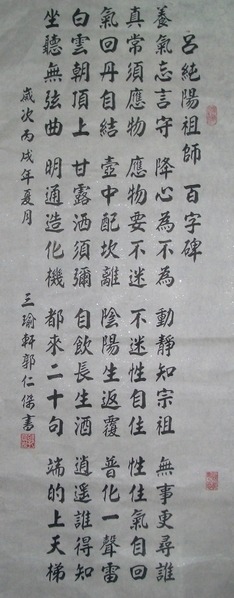 呂純陽祖師 百字碑
養氣忘言守 降心為不為 動靜知宗祖 無事更尋誰
真常須應物 應物要不迷 不迷性自住 性住氣自回
氣回丹自結 壺中配坎離 陰陽生返覆 普化一聲雷
白雲朝頂上 甘露洒須彌 自飲長生酒 逍遙誰得知
坐聽無弦曲 明通造化機 都來二十句 端的上天梯
歲次丙戌年夏月 三瑜軒郭仁傑書